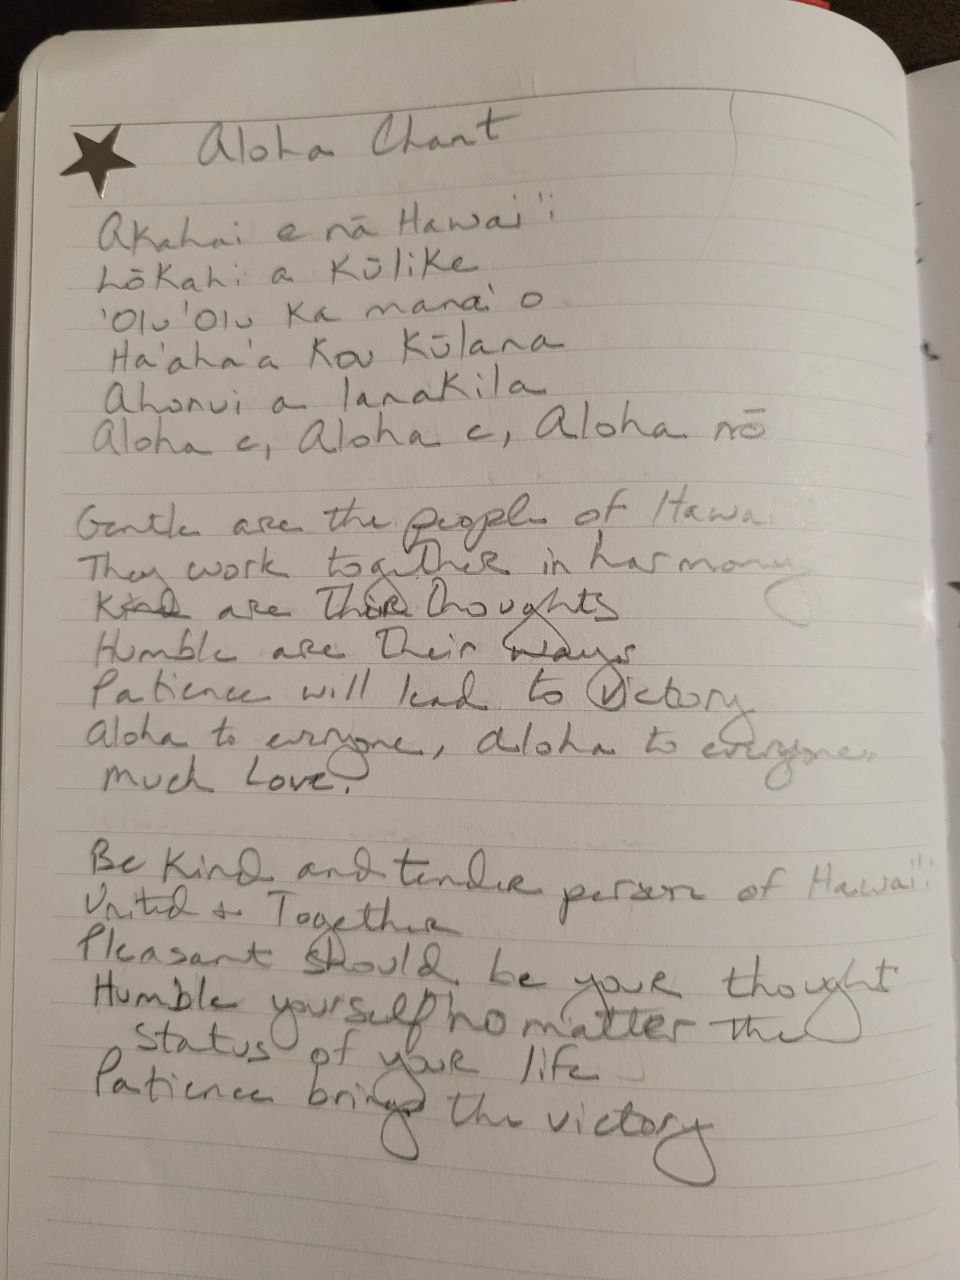 Aloha Chant
Akahai e nā Hawai'i
Lōkahi a Kūlike
'Olu'Olu Ka mana'o
Ha'aha'a Kou Kūlana
Ahonui a lanakila
Aloha e, Aloha e, Aloha nō
Gentle are the people of Hawai
They work together in harmony
Kind are their thoughts
Humble are their ways
Patience will lead to victory
Aloha to everyone, Aloha to everyone,
much Love.
Be Kind and tender person of Hawai'i
United & Together
Pleasant should be your thought
Humble yourself no matter the
status of your life
Patience brings the victory